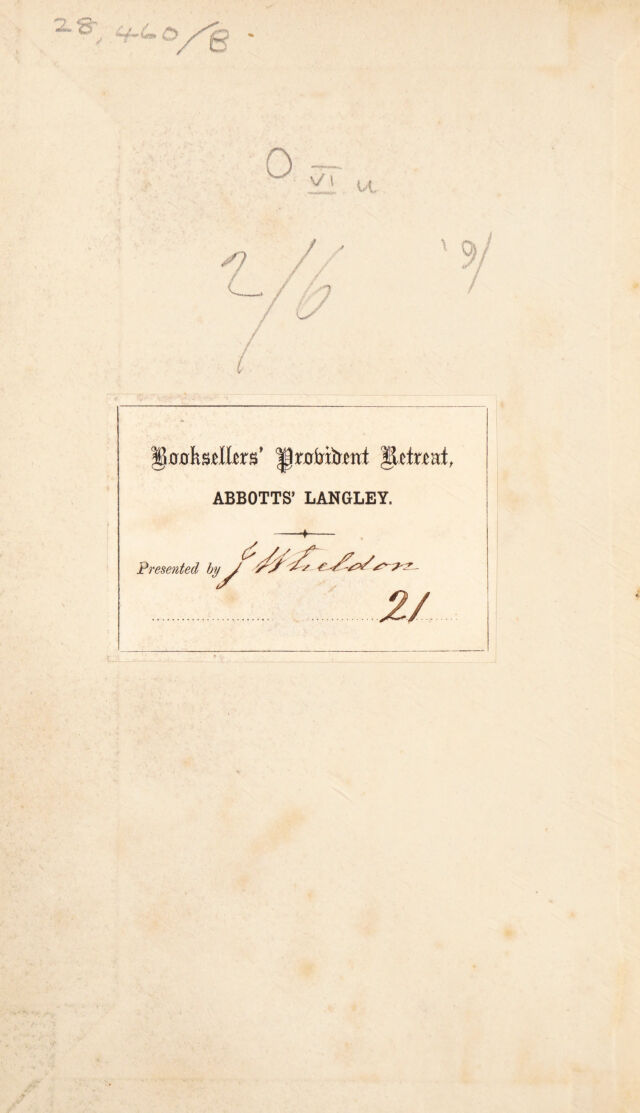 28,460/B.
O VI u
2/6 '9/
Booksellers' Provident Retreat,
ABBOTTS' LANGLEY.
Presented by J Wheldon
21